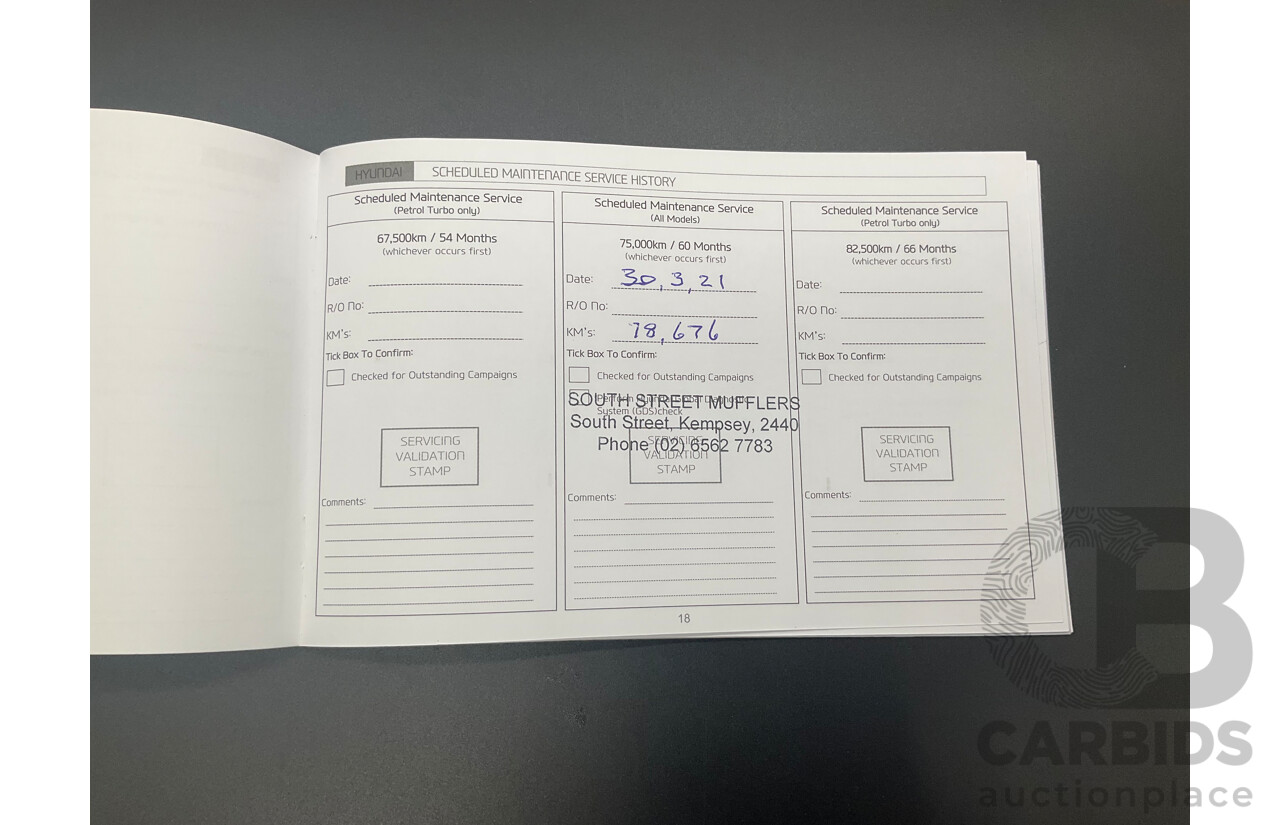 HYUNDAI SCHEDULED MAINTENANCE SERVICE HISTORY
Scheduled Maintenance Service
(Petrol Turbo only)
67,500km / 54 Months
(whichever occurs first)
Date:
R/O No:
KM's:
Tick Box To Confirm:
Checked for Outstanding Campaigns
SERVICING
VALIDATION
STAMP
Comments:
Scheduled Maintenance Service
(All Models)
75,000km / 60 Months
(whichever occurs first)
Date: 30,3,21
R/O No:
KM's: 78,676
Tick Box To Confirm:
Checked for Outstanding Campaigns
System (GDS)check
SOUTH STREET MUFFLERS
South Street, Kempsey, 2440
Phone (02) 6562 7783
SERVICING
VALIDATION
STAMP
Comments:
Scheduled Maintenance Service
(Petrol Turbo only)
82,500km / 66 Months
(whichever occurs first)
Date:
R/O No:
KM's:
Tick Box To Confirm:
Checked for Outstanding Campaigns
SERVICING
VALIDATION
STAMP
Comments:
18
CB
CARBIDS
auctionplace